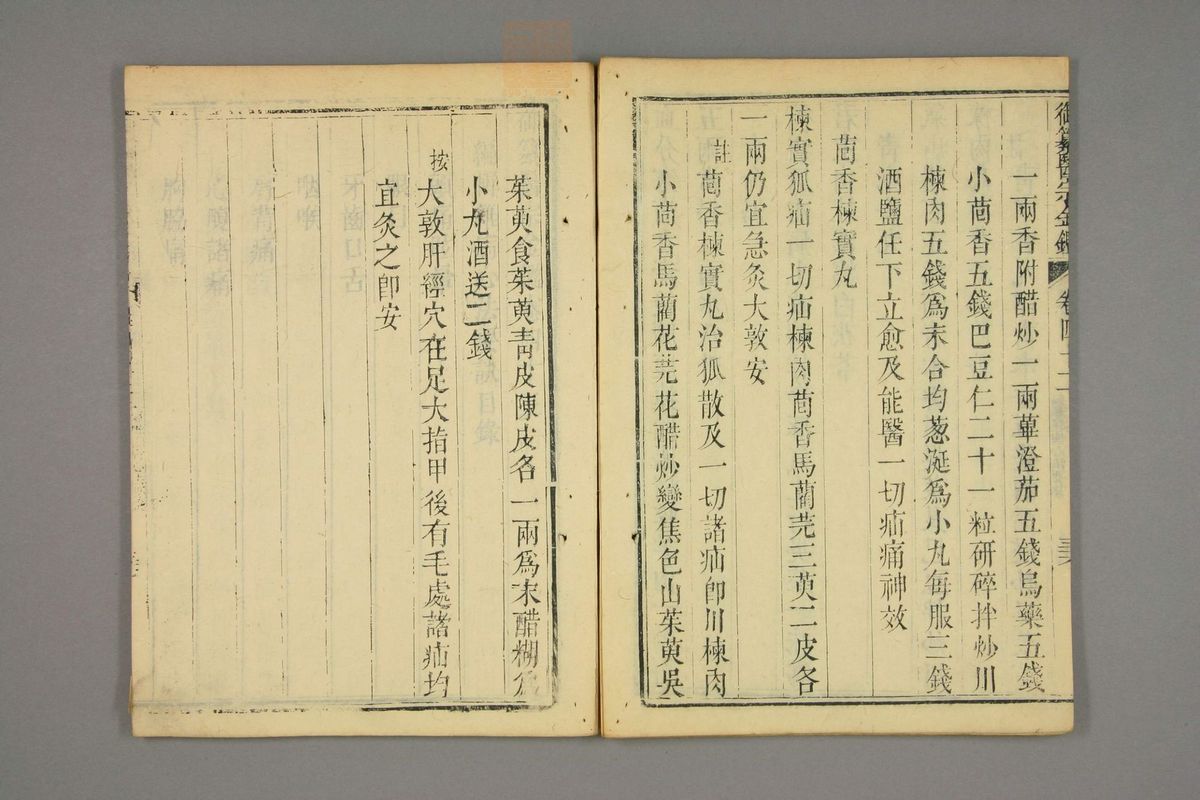 御纂醫宗金鑑 卷四二
一兩香附醋炒一兩蓽澄茄五錢烏藥五錢
小茴香五錢巴豆仁二十一粒研碎拌炒川
楝肉五錢爲末合均葱涎爲小丸每服三錢
酒鹽任下立愈及能醫一切疝痛神效
茴香楝實丸
楝實狐疝一切疝楝肉茴香馬藺芫三萸二皮各
一兩仍宜急灸大敦安
註
茴香楝實丸治狐散及一切諸疝即川楝肉
小茴香馬藺花芫花醋炒變焦色山茱萸吳
茱萸食茱萸青皮陳皮各一兩爲末醋糊爲
小丸酒送二錢
按
大敦肝經穴在足大指甲後有毛處諸疝均
宜灸之即安